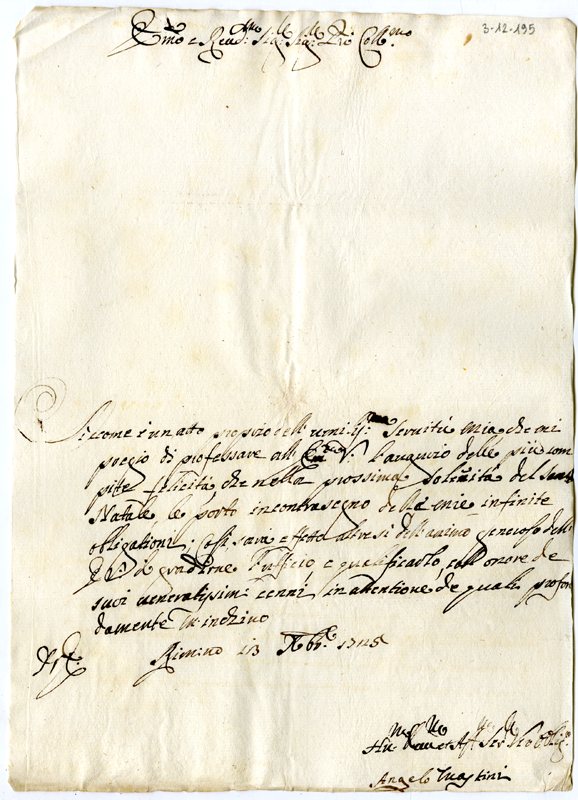 3-12-195
Em͞o e Reu:ᵐᵒ Sig:ʳ Sig:ʳ P͞ro͞n Coll:ᵐᵒ
Siccome è un atto proprio dell' umiliss:ᵐᵃ Seruitù Mia, che mi
pregio di professare all' Em:ᶻᵃ V: l'augurio delle più com
pite felicità, che nella prossima solẽnità del Santo
Natale le porto in contrasegno delle mie infinite
obligationi; Così sarà effetto altresì dell' animo generoso dell'
il gradirne l'ufficio, e qualificarlo coll' onore de
suoi ueneratissimi cenni, in attentione de quali profon
damente m' inchino
Rimino 13 Xbr̃e 1745
Hu:ᵐᵒ Deu:ᵐᵒ et Ser:ʳᵉ Oblig:ᵒ
Angelo Mastini